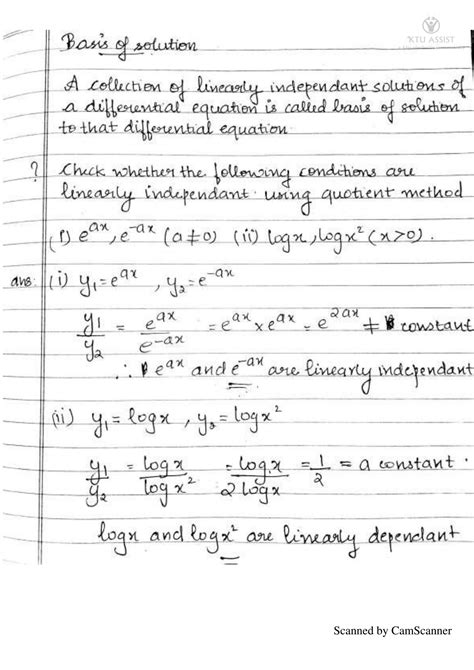 KTU ASSIST
Basis of solution
A collection of linearly independant solutions of
a differential equation is called basis of solution
to that differential equation
? Check whether the following conditions are
linearly independant using quotient method
(i) e^{ax}, e^{-ax} (a≠0) (ii) logx, logx² (x>0).
ans: (i) y₁=e^{ax}, y₂=e^{-ax}
y₁/y₂ = e^{ax}/e^{-ax} = e^{ax}×e^{ax} = e^{2ax} ≠ constant
∴ e^{ax} and e^{-ax} are linearly independant
(ii) y₁=logx, y₂=logx²
y₁/y₂ = logx/logx² = logx/2logx = 1/2 = a constant.
logx and logx² are linearly dependant
Scanned by CamScanner